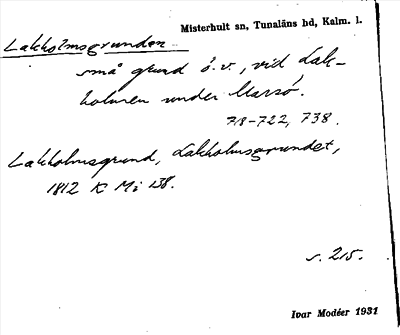 Misterhult sn, Tunaläns hd, Kalm. l.
Lakholmsgrunden
små grund ö. v., vid Lak-
holmen under Marsö.
718-722, 738.
Lakholmsgrund, Lakholmsgrundet,
1812 K Mi 138.
s. 215.
Ivar Modéer 1931